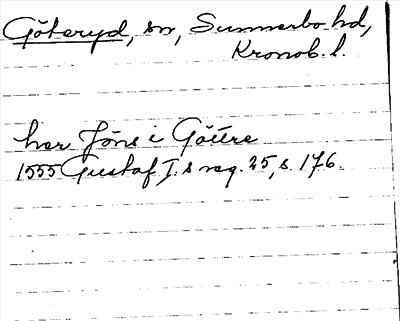 Göteryd, sn, Sunnerbo hd,
Kronob. l.
her Jöns i Götire
1555 Gustaf I:s reg. 25, s. 176.